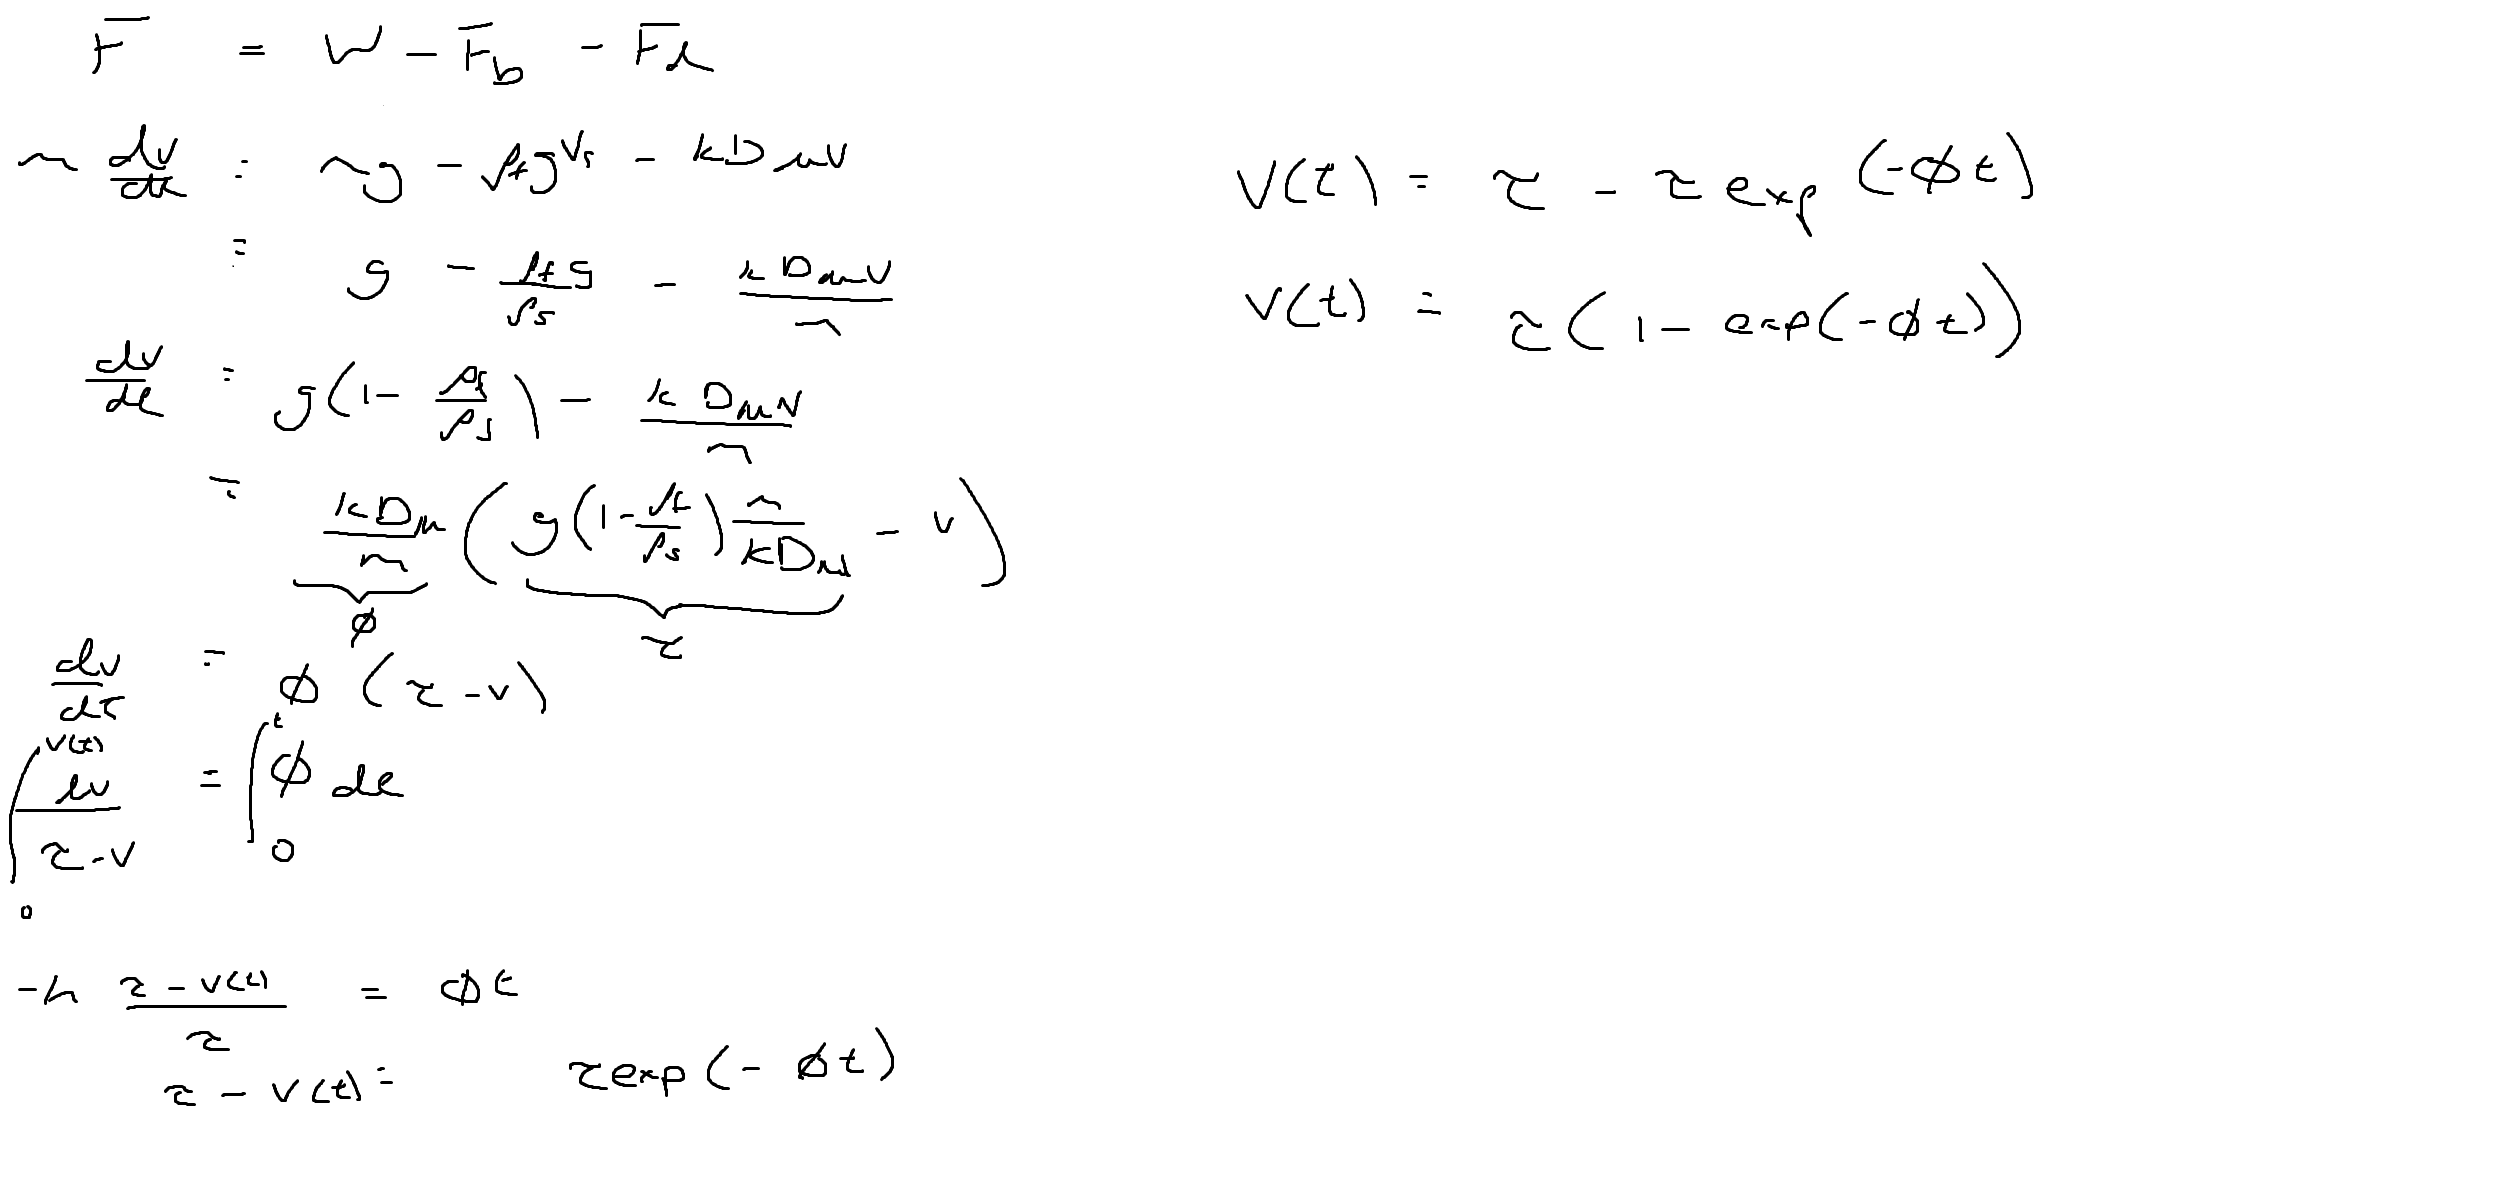 F = W - F_b - F_d
m dv/dt = mg - ρ_f g V_s - kDμv
= g - ρ_f g / ρ_s - kDμv / m
dv/dt = g(1 - ρ_f/ρ_s) - kDμv / m
= kDμ/m (g(1 - ρ_f/ρ_s) m/kDμ - v)
φ τ
dv/dt = φ(τ - v)
∫_0^v(t) dv/(τ - v) = ∫_0^t φ dt
-ln (τ - v(t))/τ = φt
τ - v(t) = τ exp(-φt)
v(t) = τ - τ exp(-φt)
v(t) = τ(1 - exp(-φt))